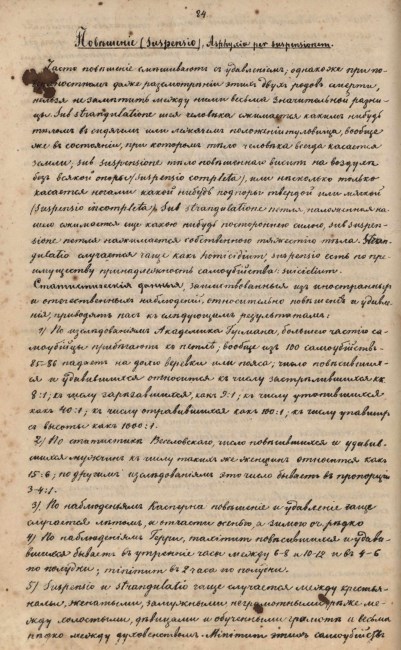 84.
Повѣшеніе (Suspensio), Asphyxia per suspensionem.
Часто повѣшеніе смѣшиваютъ съ удавленіемъ; однакоже при по-
верхностномъ даже разсмотрѣніи этихъ двухъ родовъ смерти,
нельзя не замѣтить между ними весьма значительной разни-
цы. Sub strangulatione шея человѣка сжимается какимъ нибудь
тѣломъ въ сидячемъ или лежачемъ положеніи туловища, вообще
же въ состояніи, при которомъ тѣло человѣка всегда касается
земли, sub suspensione тѣло повѣшеннаго виситъ на воздухѣ
безъ всякой опоры (Suspensio completa), или нѣсколько только
касается ногами какой нибудь подпоры твердой или мягкой
(Suspensio incompleta). Sub strangulatione петля, наложенная на
шею сжимается еще какою нибудь постороннею силою, sub suspen-
sione петля нажимается собственною тяжестію тѣла. Stran-
gulatio случается чаще какъ homicidium; suspensio есть по пре-
имуществу принадлежность самоубійства: suicidium.
Статистическія данныя, заимствованныя изъ иностранныхъ
и отечественныхъ наблюденій относительно повѣшенія и удавле-
нія, приводятъ насъ къ слѣдующимъ результатамъ:
1) По изслѣдованіямъ Академика большею частію са-
моубійцы прибѣгаютъ къ петлѣ; вообще изъ 100 самоубійствъ
85-86 падаетъ на долю веревки или пояса; число повѣсивших-
ся и удавившихся относится къ числу застрѣлившихся какъ
8:1; къ числу зарѣзавшихся, какъ 9:1; къ числу утопившихся
какъ 40:1; къ числу отравившихся какъ 100:1; къ числу упавшихъ
съ высоты какъ 1000:1.
2) По статистикѣ Веселовскаго, число повѣсившихся и удавив-
шихся мужчинъ къ числу такихъ же женщинъ относится какъ
15:6; по другимъ изслѣдованіямъ это число бываетъ въ пропорціи
3-4:1.
3) По наблюденьямъ Каспера повѣшеніе и удавленіе чаще
случается лѣтомъ, и отчасти осенью, а зимою оч. рѣдко
4) По наблюденіямъ Герри, maximum повѣсившихся и удави-
вшихся бываетъ въ утренніе часы между 6-8 и 10-12 и въ 4-6
по полудни; minimum въ 2 часа по полудни.
5) Suspensio и strangulatio чаще случается между крестья-
нами, женатыми, замужными неграмотными рѣже ме-
жду холостыми, дѣвицами и обученными грамотѣ и весьма
рѣдко между духовенствомъ. Minimum этихъ самоубійствъ